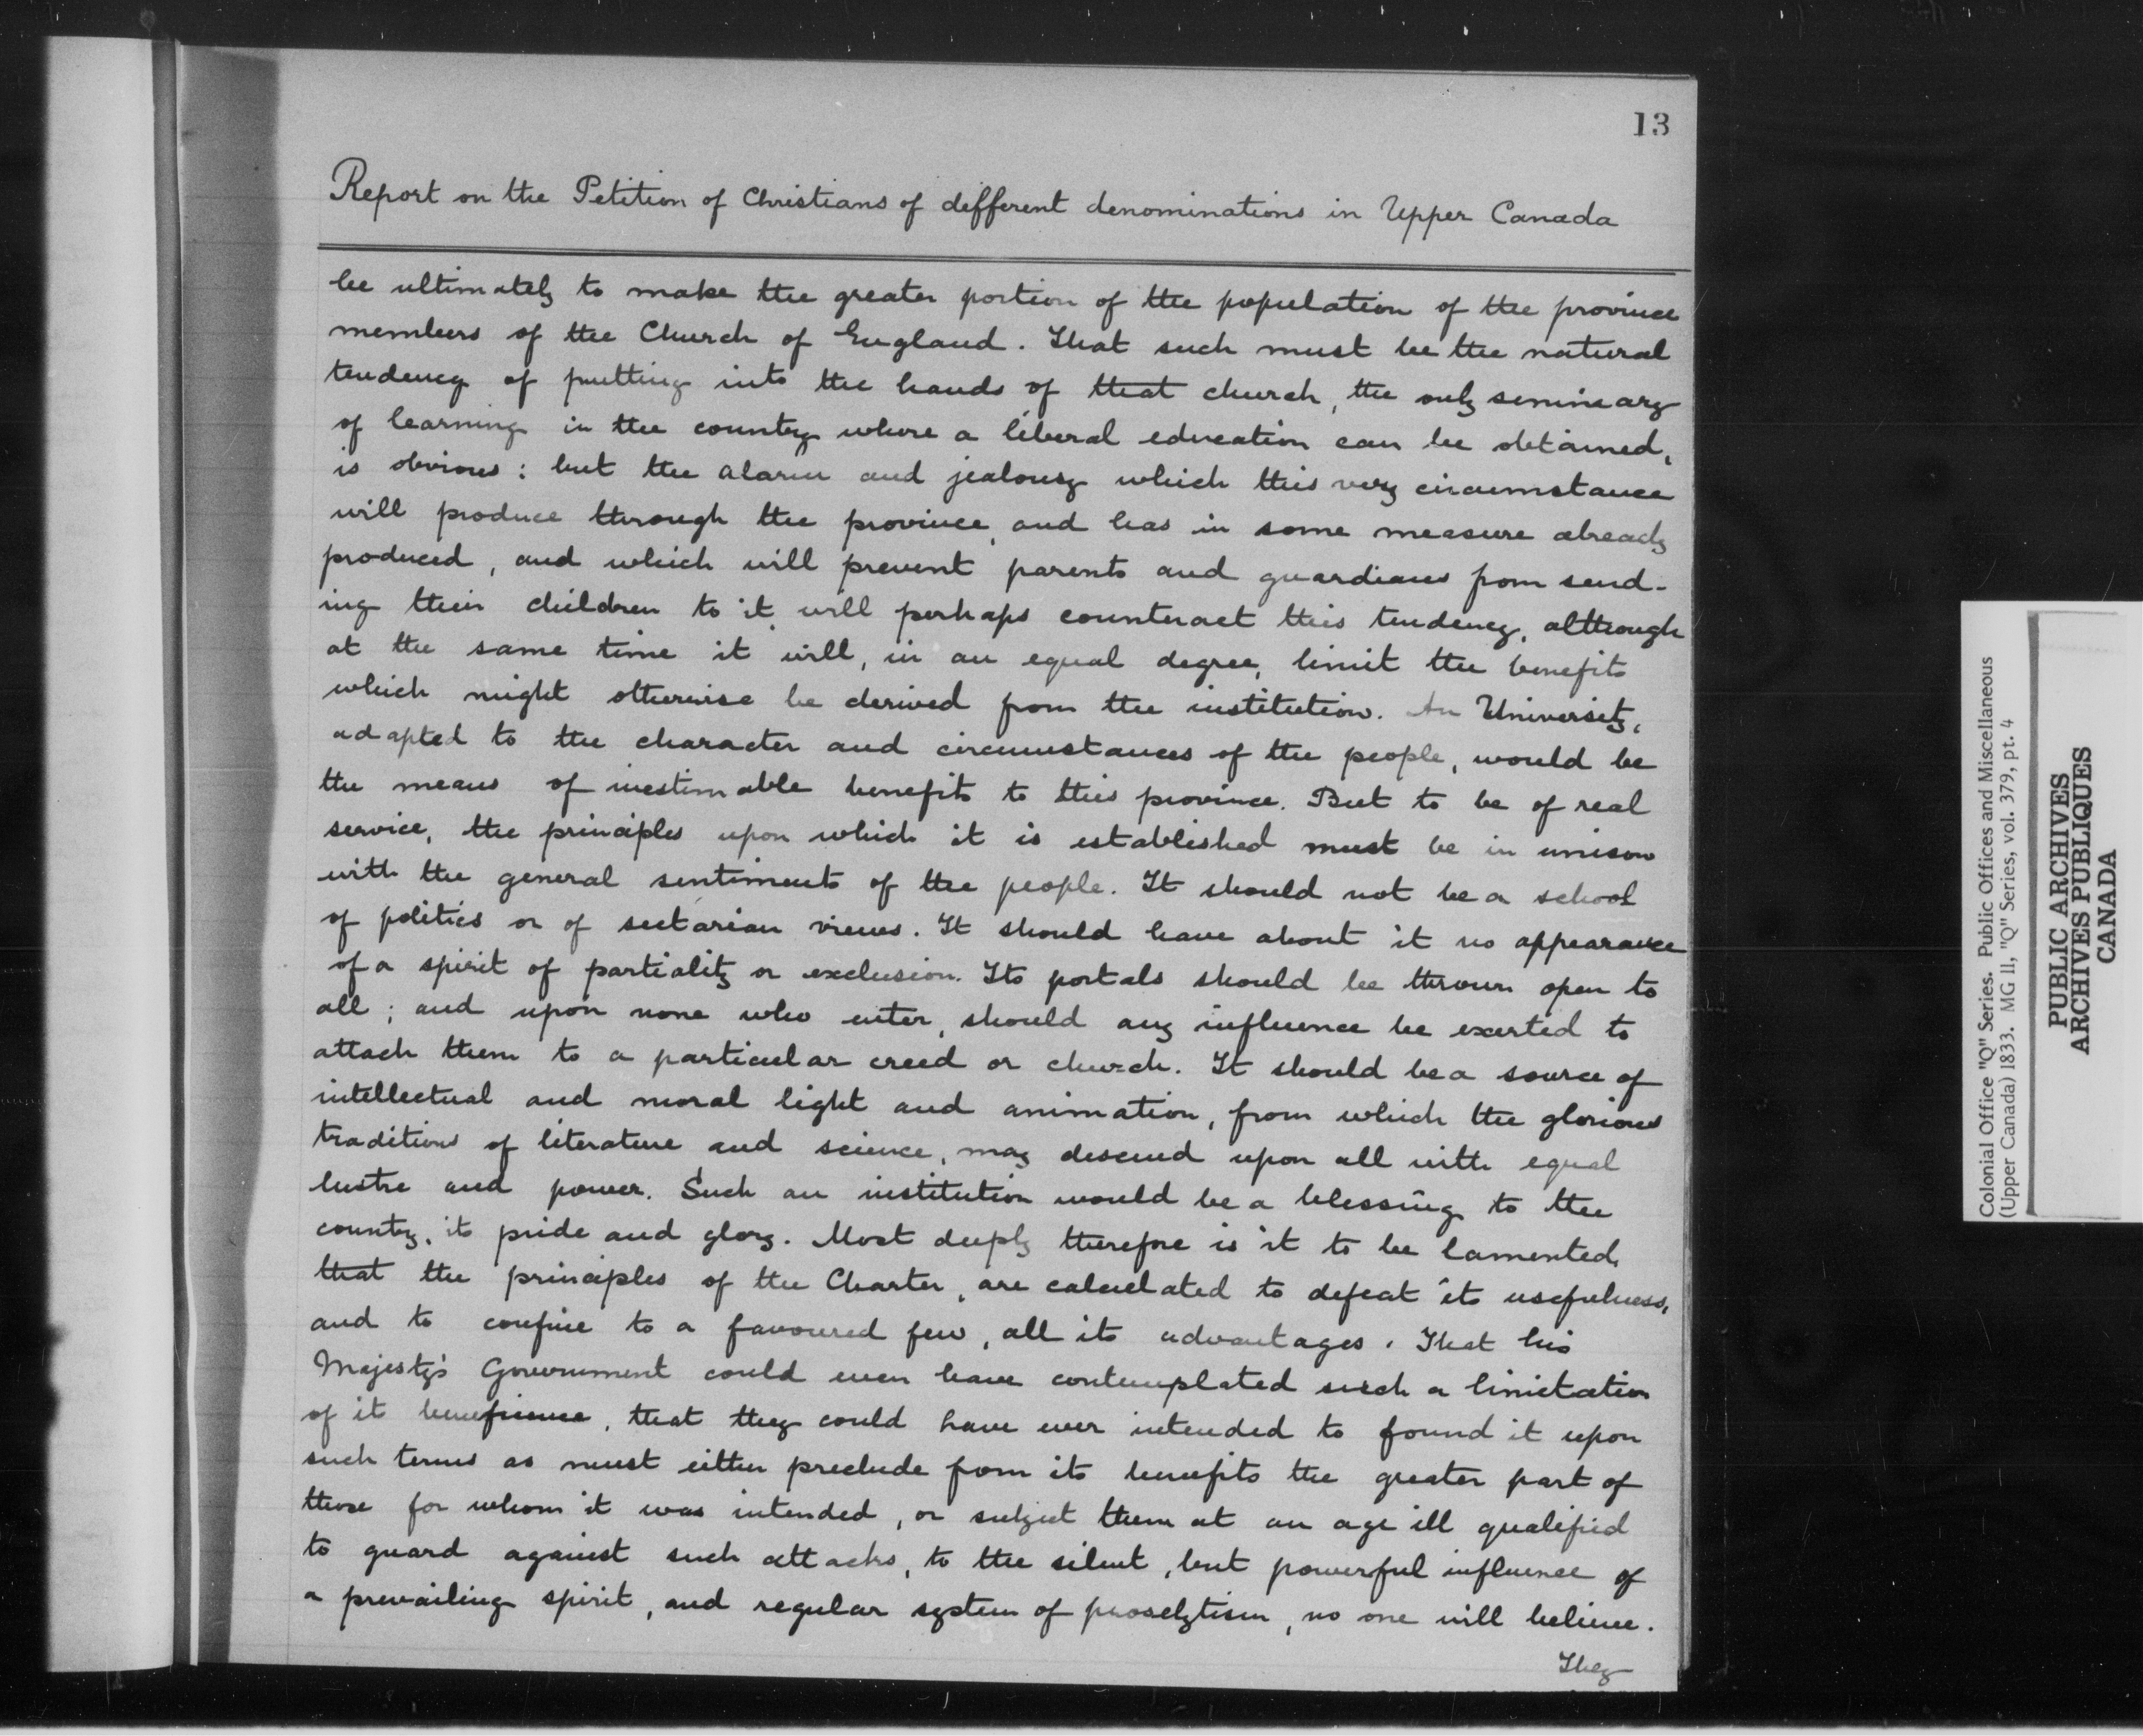 13
Report on the Petition of Christians of different denominations in Upper Canada
be ultimately to make the greater portion of the population of the province
members of the Church of England. That such must be the natural
tendency of putting into the hands of that church, the only seminary
of learning in the country where a liberal education can be obtained,
is obvious: but the alarm and jealousy which this very circumstance
will produce through the province, and has in some measure already
produced, and which will prevent parents and guardians from send-
ing their children to it, will perhaps counteract this tendency, although
at the same time it will, in an equal degree, limit the benefits
which might otherwise be derived from the institution. An University,
adapted to the character and circumstances of the people, would be
the means of inestimable benefits to this province. But to be of real
service, the principles upon which it is established must be in unison
with the general sentiments of the people. It should not be a school
of politics or of sectarian views. It should have about it no appearance
of a spirit of partiality or exclusion. Its portals should be thrown open to
all; and upon none who enter, should any influence be exerted to
attach them to a particular creed or church. It should be a source of
intellectual and moral light and animation, from which the glorious
traditions of literature and science, may descend upon all with equal
lustre and power. Such an institution would be a blessing to the
country, its pride and glory. Most deeply therefore is it to be lamented,
that the principles of the Charter, are calculated to defeat its usefulness,
and to confine to a favoured few, all its advantages. That his
Majesty's Government could even have contemplated such a limitation
of it beneficence, that they could have ever intended to found it upon
such terms as must either preclude from its benefits the greater part of
those for whom it was intended, or subject them at an age ill qualified
to guard against such attacks, to the silent, but powerful influence of
a prevailing spirit, and regular system of proselytism, no one will believe.
They
Colonial Office "Q" Series. Public Offices and Miscellaneous
(Upper Canada) 1833. MG 11, "Q" Series, vol. 379, pt. 4
PUBLIC ARCHIVES
ARCHIVES PUBLIQUES
CANADA